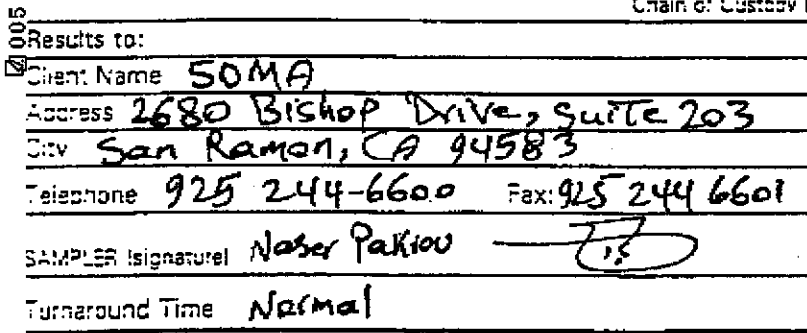 Chain of Custody
005
Results to:
Client Name SOMA
Address 2680 Bishop Drive, Suite 203
City San Ramon, CA 94583
Telephone 925 244-6600 Fax: 925 244 6601
SAMPLER (signature) Naser Pakrou
Turnaround Time Normal